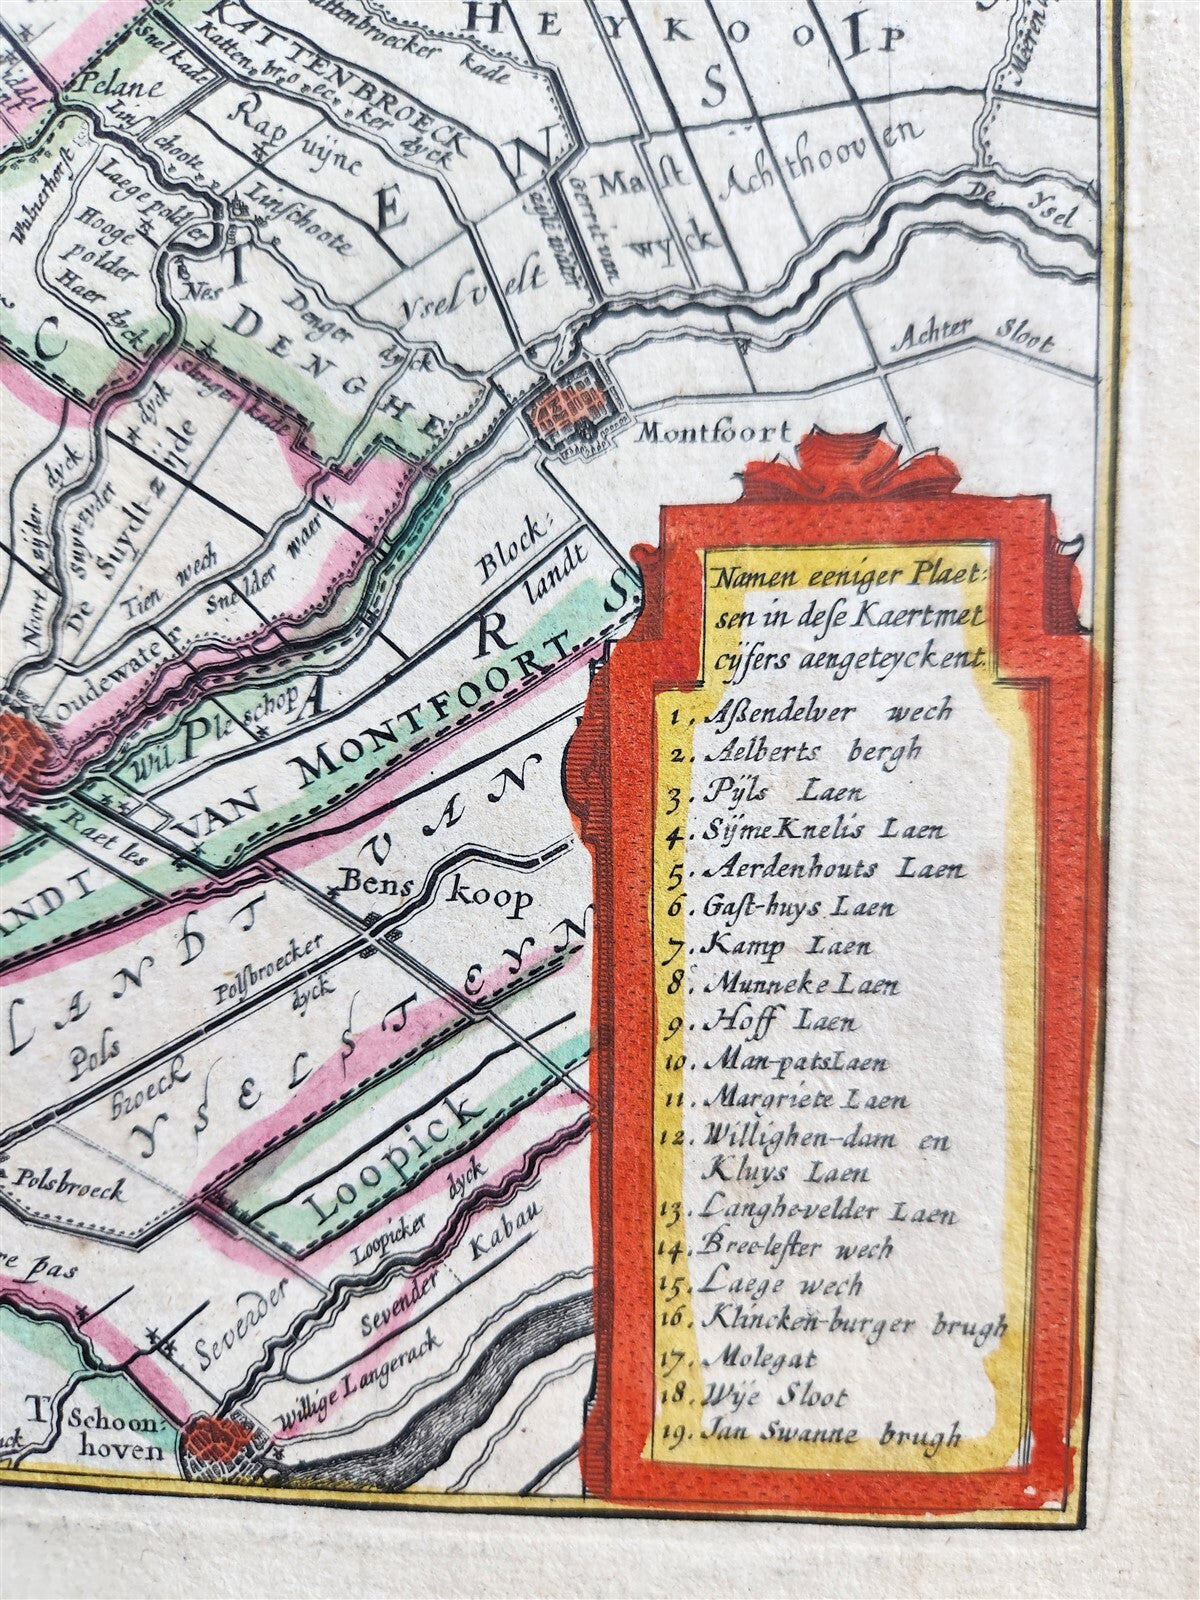 HEYKOOP
Kattenbroecker kade
KATTENBROECK
Katten,,br,,o,,ec,,ker dyck
Snelkade
Pelane
Linſchoote
Rapuijne
SI
N
E
T
C
Maſtwyck
Achthooven
De Yſel
Gerrit van
Linſchoote
Laege polder
Hooge polder
Haer dyck
Nes
Yselvelt
Denger dyck
DENGHE
Achter Sloot
Montfoort
Slinger kade
dyck
De Suyt-zyder
Suydt-zijde
Noort zeijder dyck
Tien wech
Snelder waert
Block:
landt
Oudewater
Wilschop
Ple
A
R
S
VAN MONTFOORT
Raet les
VAN
Benskoop
LANDT
Polſbroecker dyck
YSELSTEYN
Pols
broeck
Polsbroeck
Loopick
Loopicker dyck
Sevender Kabau
Severder
Willige Langerack
re pas
T
Schoon:
hoven
Namen eeniger Plaet:
sen in deſe Kaertmet
cijfers aengeteyckent.
1. Aßendelver wech
2. Aelberts bergh
3. Pÿls Laen
4. Sÿme Knelis Laen
5. Aerdenhouts Laen
6. Gaſt-huys Laen
7. Kamp Laen
8. Munneke Laen
9. Hoff Laen
10. Man-patsLaen
11. Margriete Laen
12. Willighen-dam en
Kluys Laen
13. Langhe-velder Laen
14. Bree-leſter wech
15. Laege wech
16. Klincken-burger brugh
17. Molegat
18. Wÿe Sloot
19. Jan Swanne brugh